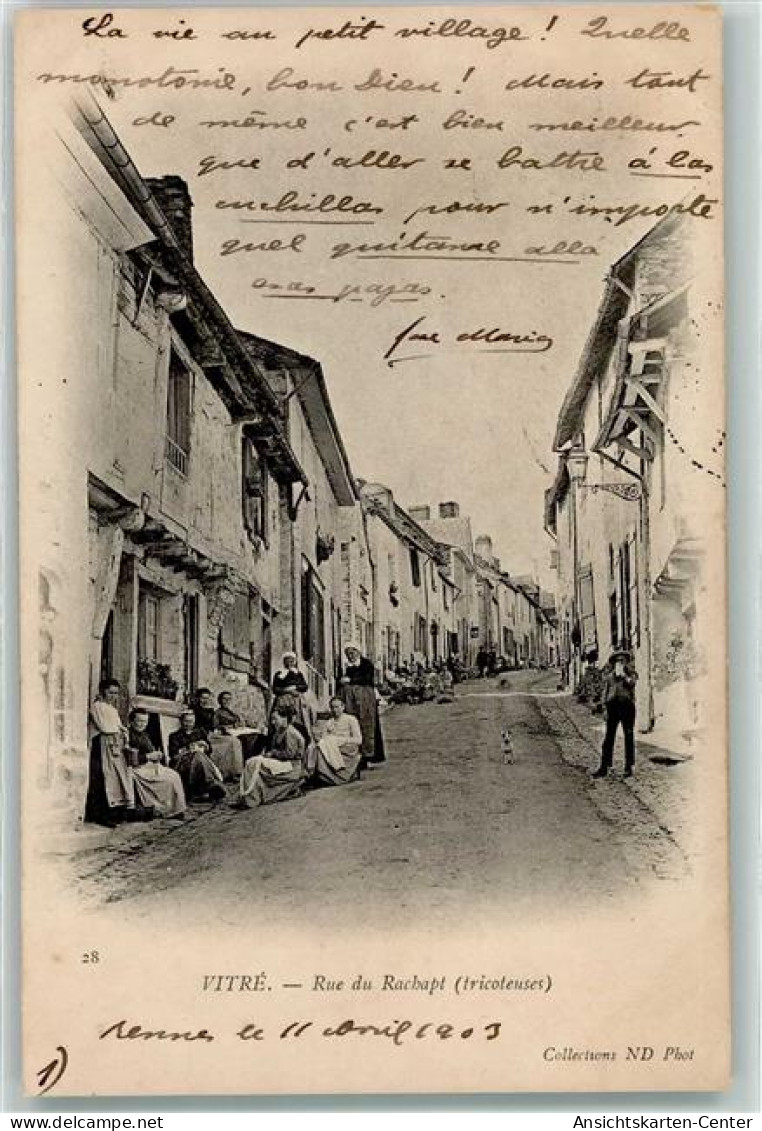 La vie au petit village ! Quelle
monotonie, bon Dieu ! Mais tout
de même c'est bien meilleur
que d'aller se battre à las
cuchillas pour n'importe
quel guitanne allá
esas pajas.
José Maria
28
VITRÉ. — Rue du Rachapt (tricoteuses)
Rennes le 11 Avril 1903
Collections ND Phot
1)
Ansichtskarten-Center